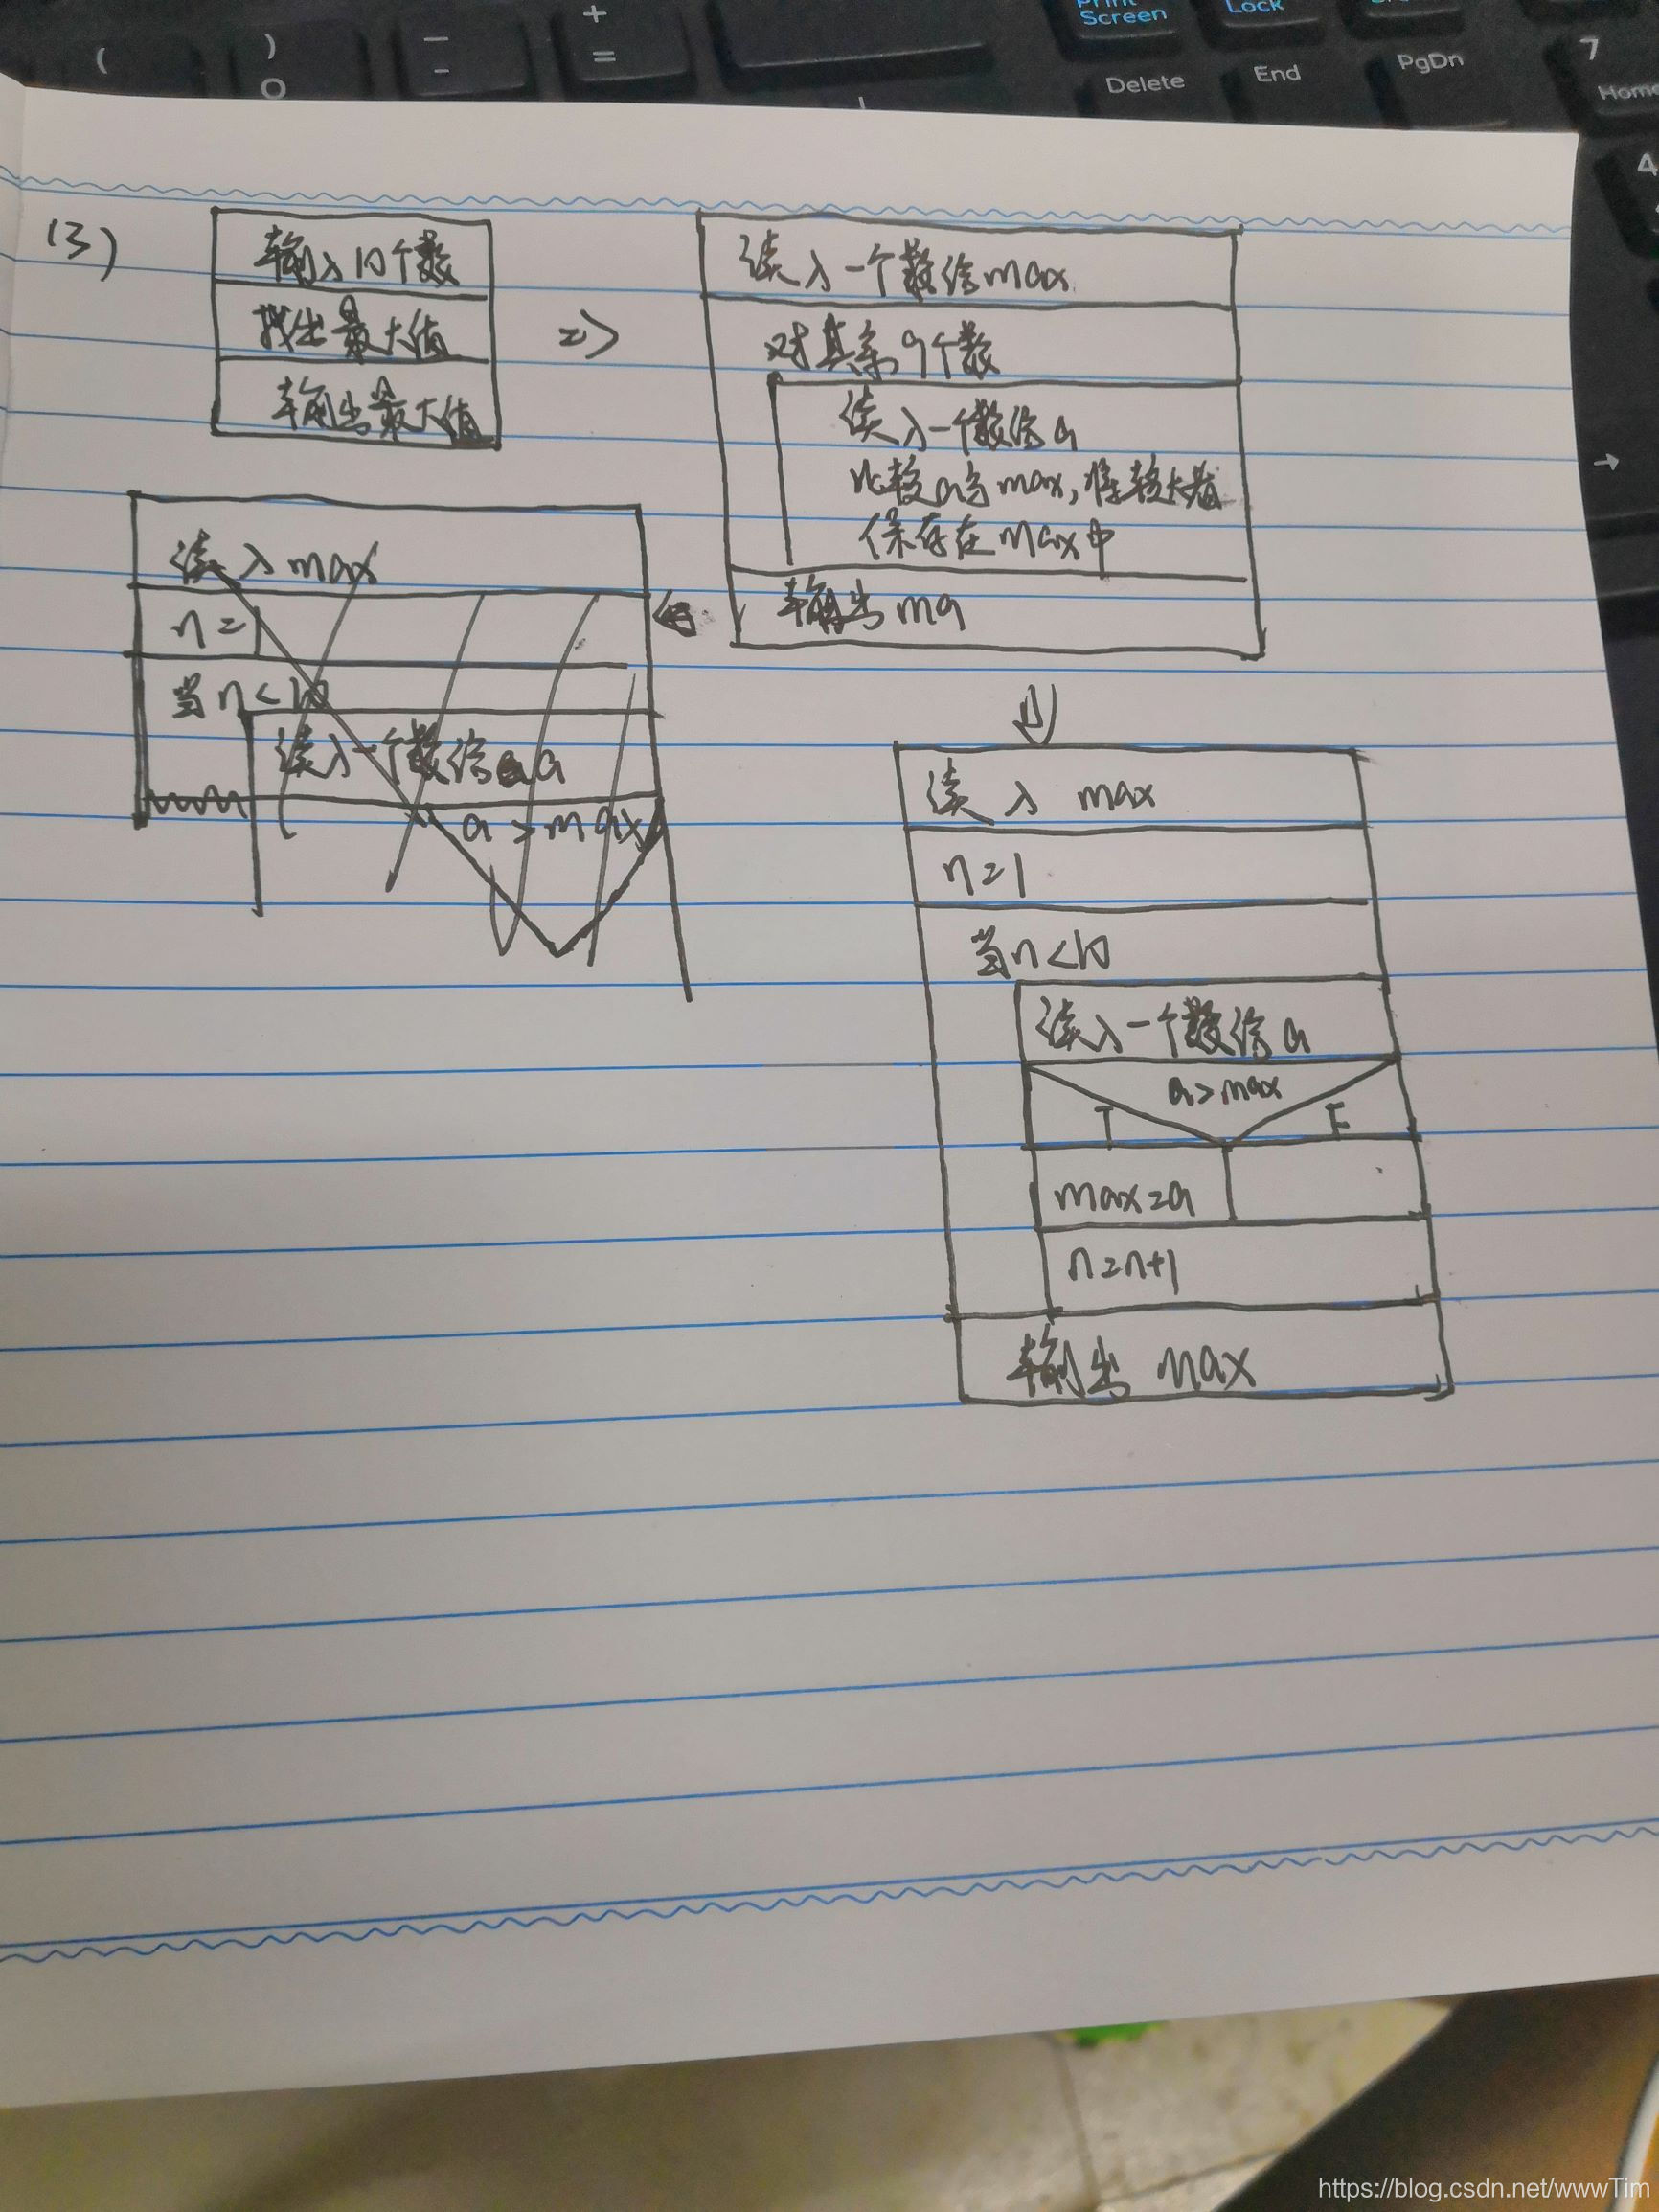 (3)
输入10个数
找出最大值
输出最大值
=>
读入一个数给max
对其余9个数
读入一个数给a
比较a与max,将较大者
保存在max中
输出ma
读入max
n=1
当n<10
读入一个数给a
a>max
读入 max
n=1
当n<10
读入一个数给a
a>max
T F
max=a
n=n+1
输出 max
+
=
(
)
0
—
-
Print
Screen
Lock
Delete
End
PgDn
7
Home
4
→
https://blog.csdn.net/wwwTim